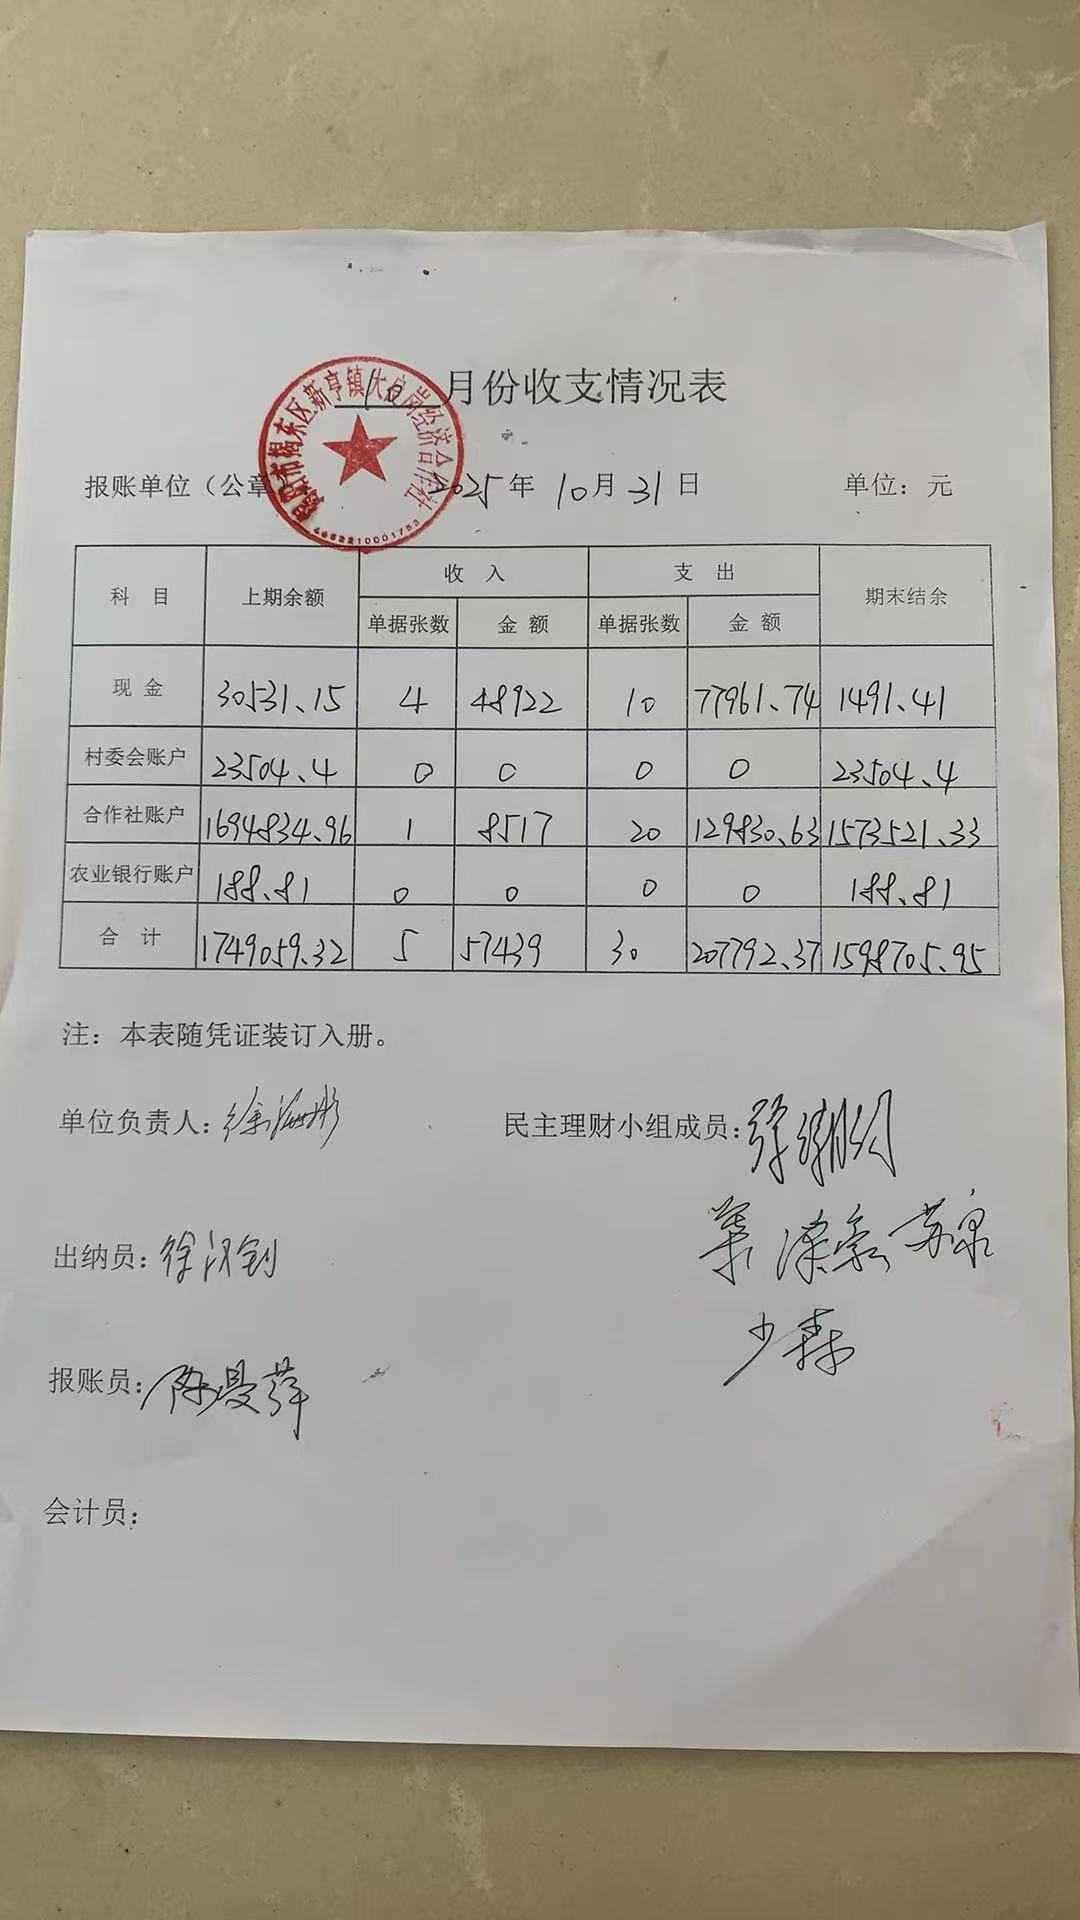 10月份收支情况表
报账单位（公章 2025年10月31日 单位：元
科目 上期余额 收入 支出 期末结余
单据张数 金额 单据张数 金额
现金 30531.15 4 48922 10 77961.74 1491.41
村委会账户 23504.4 0 0 0 0 23504.4
合作社账户 1694834.96 1 8517 20 129830.63 1573521.33
农业银行账户 188.81 0 0 0 0 188.81
合计 1749059.32 5 57439 30 207792.37 1598705.95
注：本表随凭证装订入册。
单位负责人： 民主理财小组成员：
苏泉
出纳员：徐汉钊
少森
报账员：陈曼萍
会计员：
揭东区新亨镇 经济合作社
4452210001753